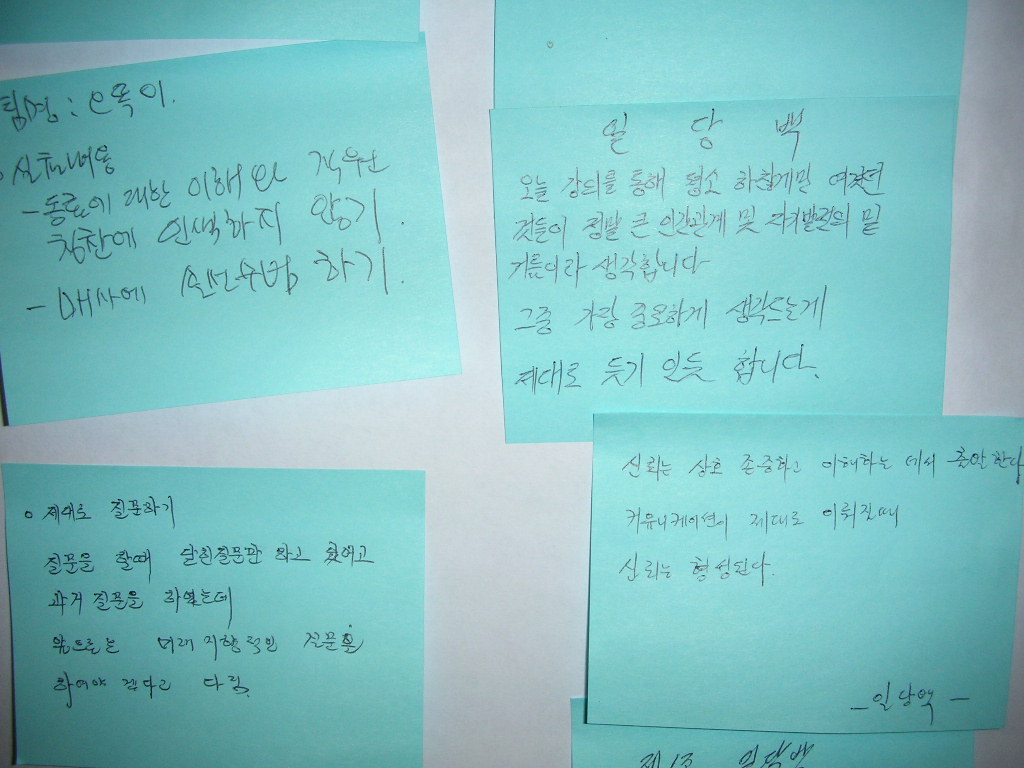 팀명 : 으뜸이.
실천내용
- 동료에 대한 이해와 격려
칭찬에 인색하지 않기.
- 매사에 솔선수범 하기.
일 당 백
오늘 강의를 통해 평소 하찮게만 여겼던
것들이 정말 큰 인간관계 및 자기발전의 밑
거름이라 생각합니다
그중 가장 중요하게 생각드는게
제대로 듯기 인듯 합니다.
○ 제대로 질문하기
질문을 할때 닫힌질문만 하고 있었고
과거 질문을 하였는데
앞으로는 미래 지향적인 질문을
하여야 겠다고 다짐.
신뢰는 상호 존중하고 이해하는 데서 출발한다
커뮤니케이션이 제대로 이뤄질때
신뢰는 형성된다.
- 일당백 -
제1조 일당백